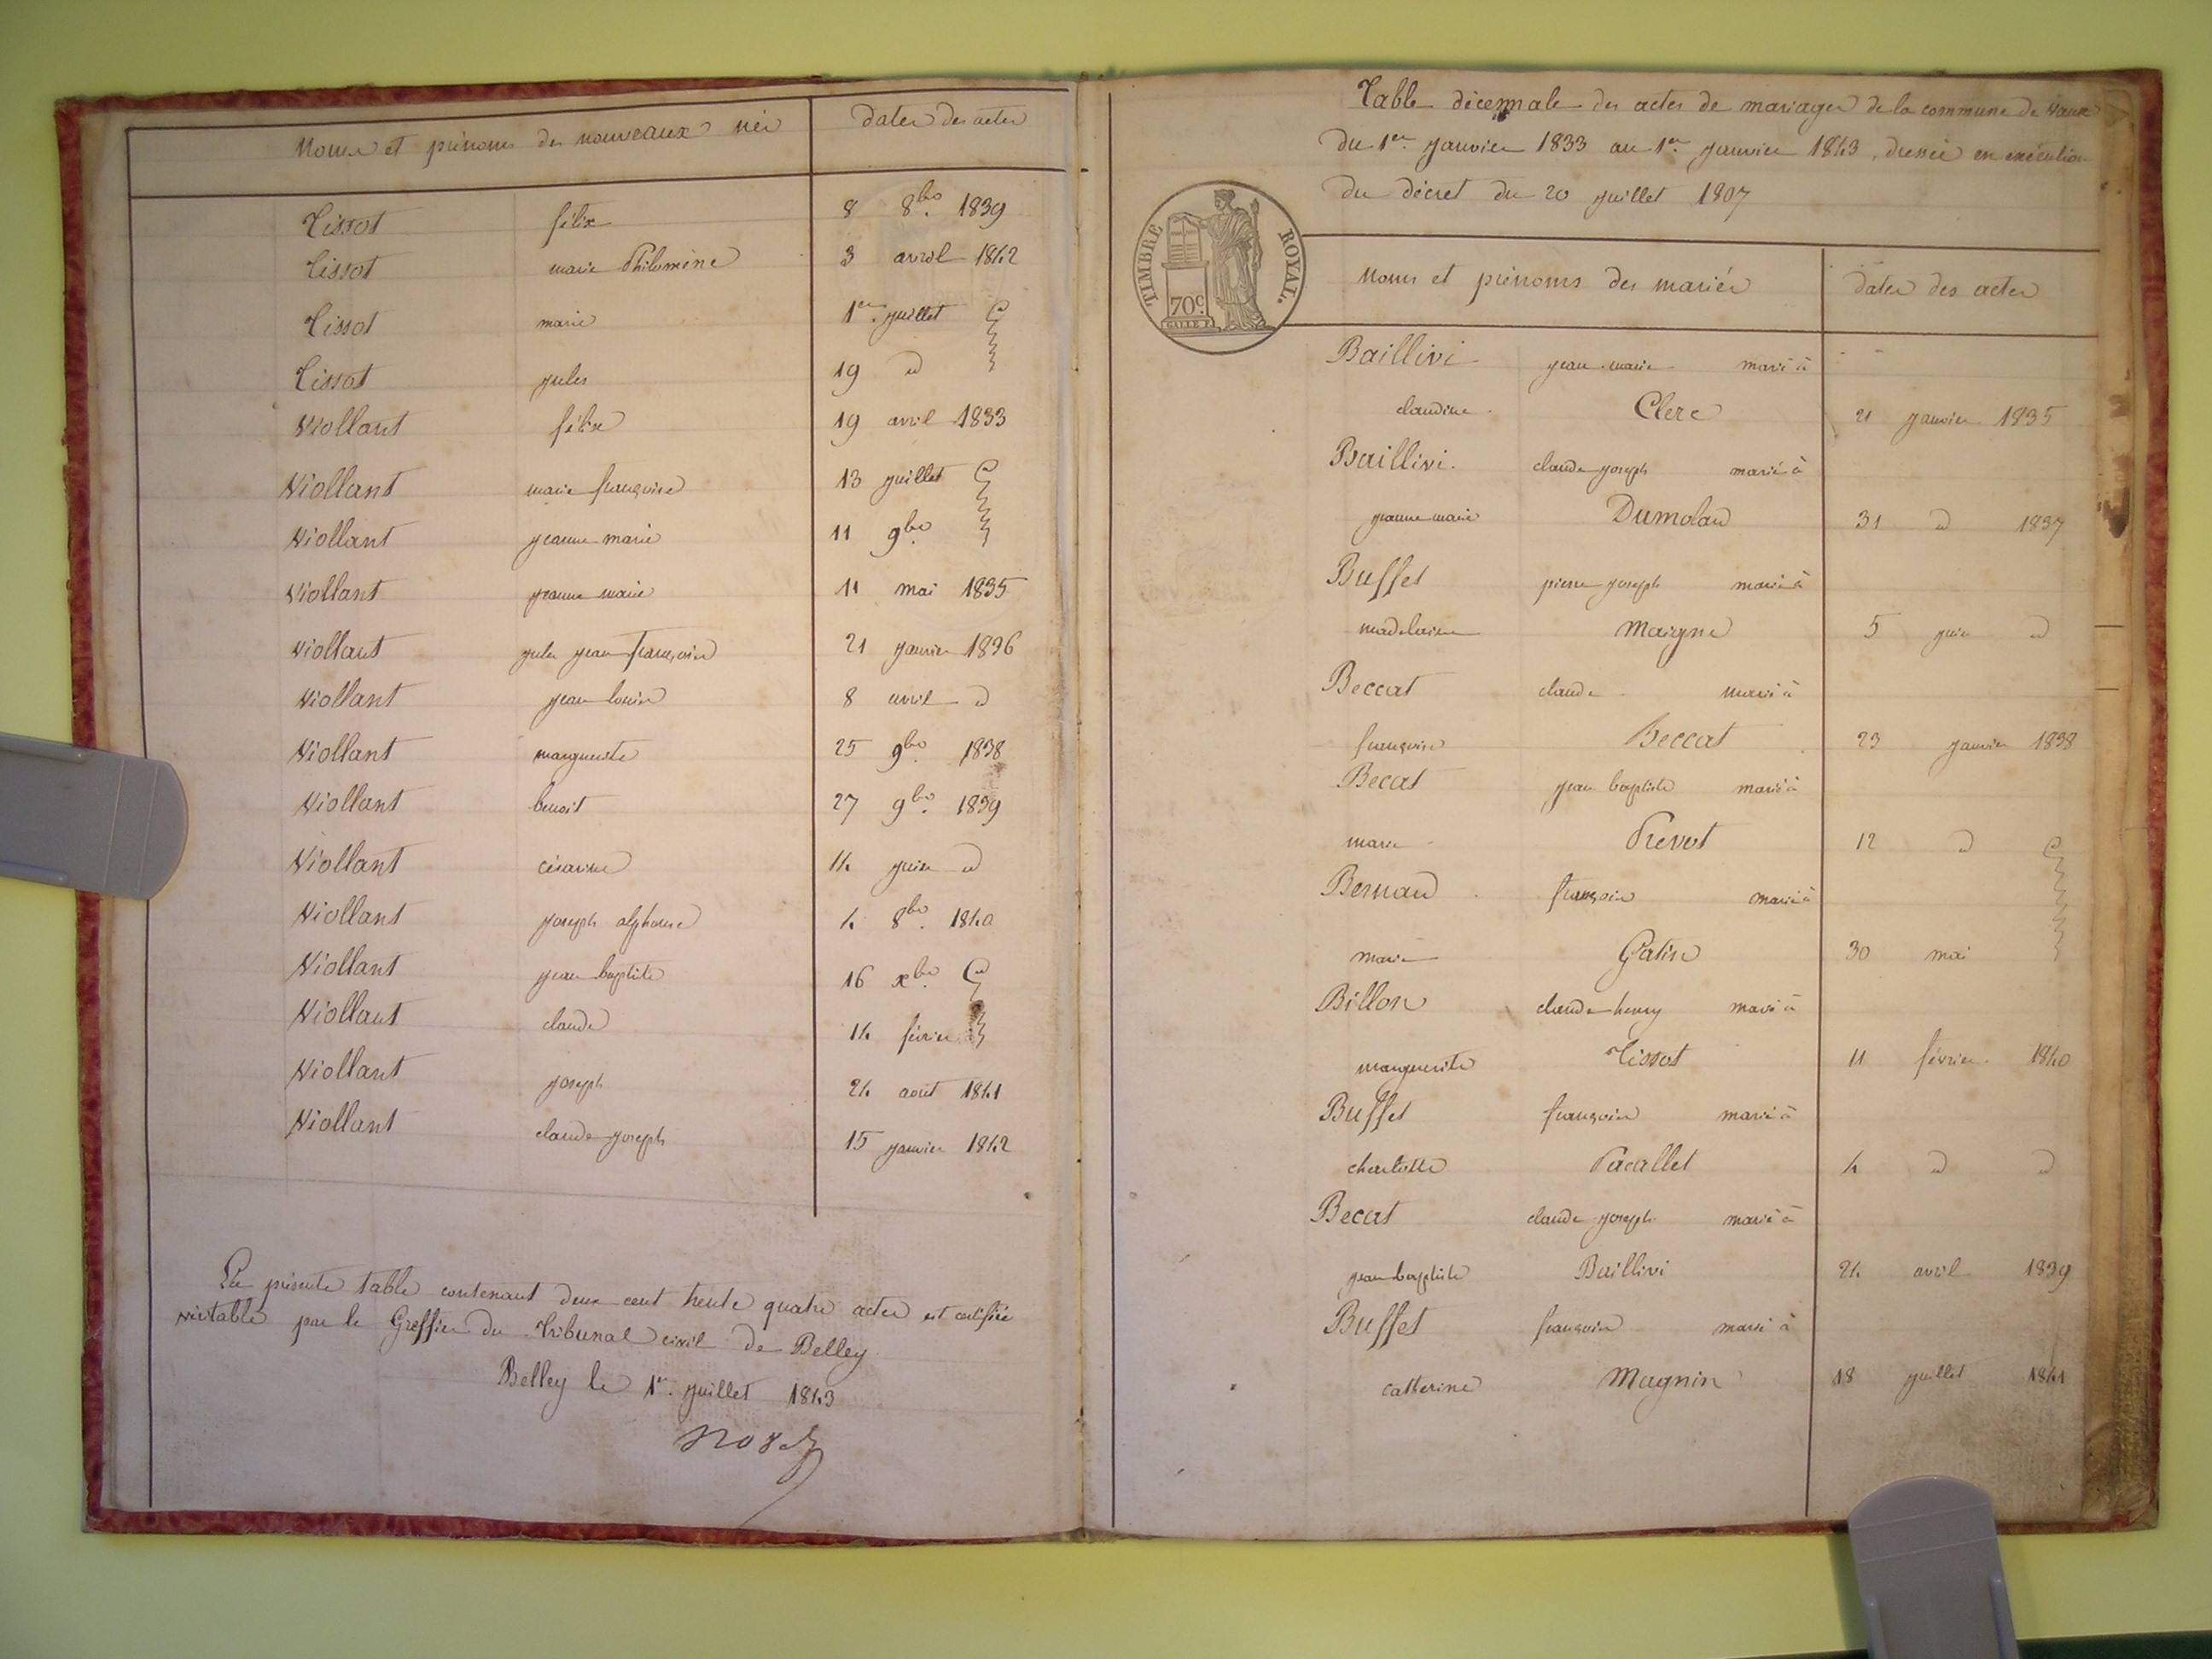 Noms et prénoms des nouveaux nés dates des actes
Tissot félix 8 8bre 1839
Tissot marie Philomène 3 avril 1842
Tissot marie 1er juillet
Tissot jules 19 d
Viollant félix 19 avril 1833
Viollant marie françoise 13 juillet
Viollant jeanne marie 11 9bre
Viollant jeanne marie 11 mai 1835
Viollant jules jean françois 21 janvier 1836
Viollant jean louis 8 avril d
Viollant marguerite 25 9bre 1838
Viollant benoit 27 9bre 1839
Viollant césarine 14 juin d
Viollant joseph alphonse 4 8bre 1840
Viollant jean baptiste 16 xbre
Viollant claude 14 février
Viollant joseph 24 août 1841
Viollant claude joseph 15 janvier 1842
La présente table contenant deux cent trente quatre actes est certifiée
véritable par le Greffier du Tribunal civil de Belley
Belley le 1er juillet 1843
Table décennale des actes de mariages de la commune de Vaux
du 1er janvier 1833 au 1er janvier 1843, dressée en exécution
du décret du 20 juillet 1807
TIMBRE ROYAL.
70c.
Noms et prénoms des mariés dates des actes
Baillivi jean marie marié à
claudine Clerc 21 janvier 1835
Baillivi claude joseph marié à
jeanne marie Dumolard 31 d 1837
Buffet pierre joseph marié à
madelaine Maigne 5 juin d
Beccat claude marié à
françoise Beccat 23 janvier 1838
Becat jean baptiste marié à
marie Prevot 12 d
Bernard françois marié à
marie Gatin 30 mai
Billon claude henry marié à
marguerite Tissot 11 février 1840
Buffet françois marié à
charlotte Pacallet 4 d d
Becat claude joseph marié à
jean baptiste Baillivi 24 avril 1839
Buffet françois marié à
catherine Magnin 18 juillet 1841